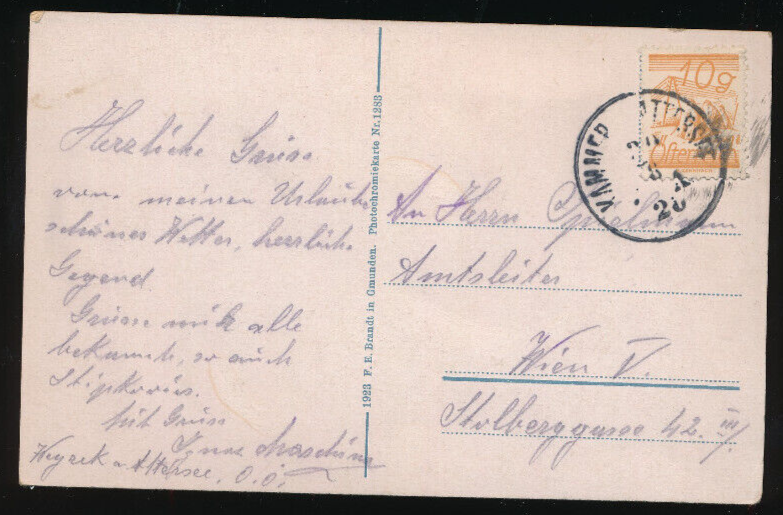 Herzliche Grüsse
von meinen Urlaub
schönes Wetter, herrliche
Gegend.
Grüsse mir alle
bekannte, so auch
Mit Gruss
Weyreck a. Attersee, O.Ö.
1923 F. E. Brandt in Gmunden. Photochromiekarte Nr. 1283
10g
KAMMER ATTERSEE
An Herrn
Amtsleiter
Wien V.
Stolberggasse 42. III/.